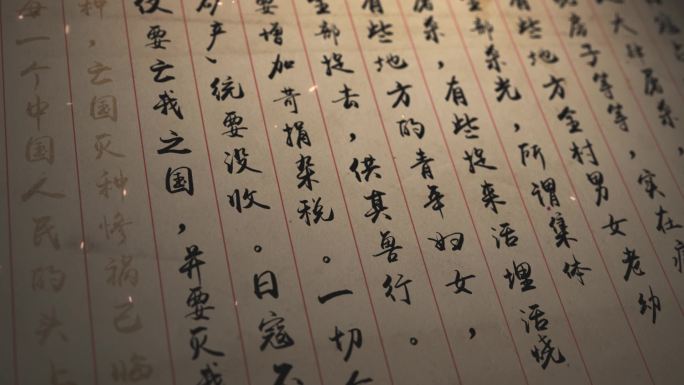 寇占
大批屠杀，
房子等等，实在疯
有些地方全村男女老幼
全部杀光，所谓集体
屠杀，有些捉来活埋活烧
有些地方的青年妇女，
全部捉去，供其兽行。
要增加苛捐杂税。一切
矿产、统要没收。日寇不
仅要亡我之国，并要灭我
种，亡国灭种惨祸已临
每一个中国人民的头上